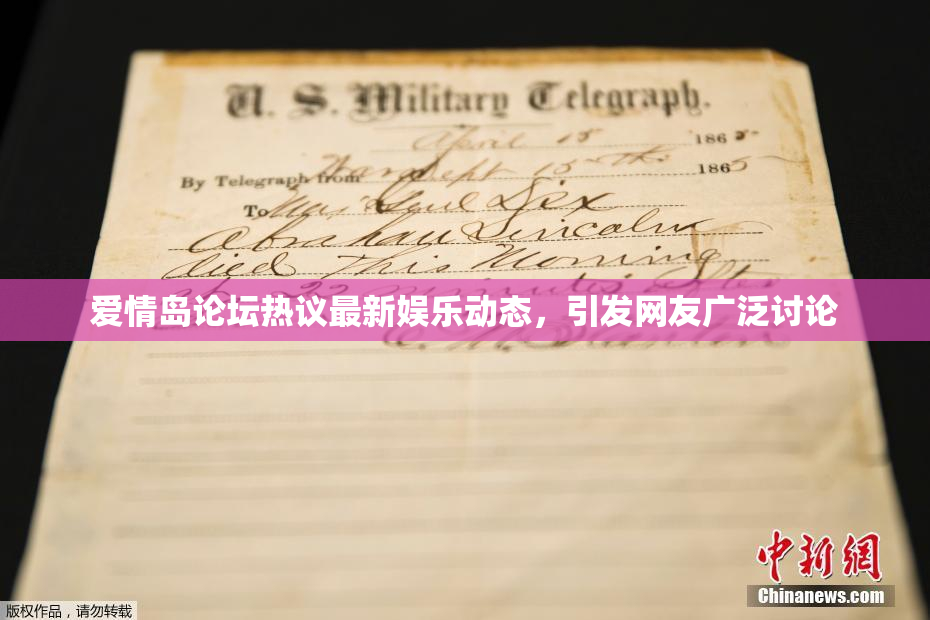 U. S. Military Telegraph.
April 15 1865
By Telegraph from War Dept 15th 1865
To Maj Genl Dix
Abraham Lincoln
died This Morning
22 minutes after
爱情岛论坛热议最新娱乐动态，引发网友广泛讨论
E. M. Stanton
中新網
Chinanews.com
版权作品，请勿转载